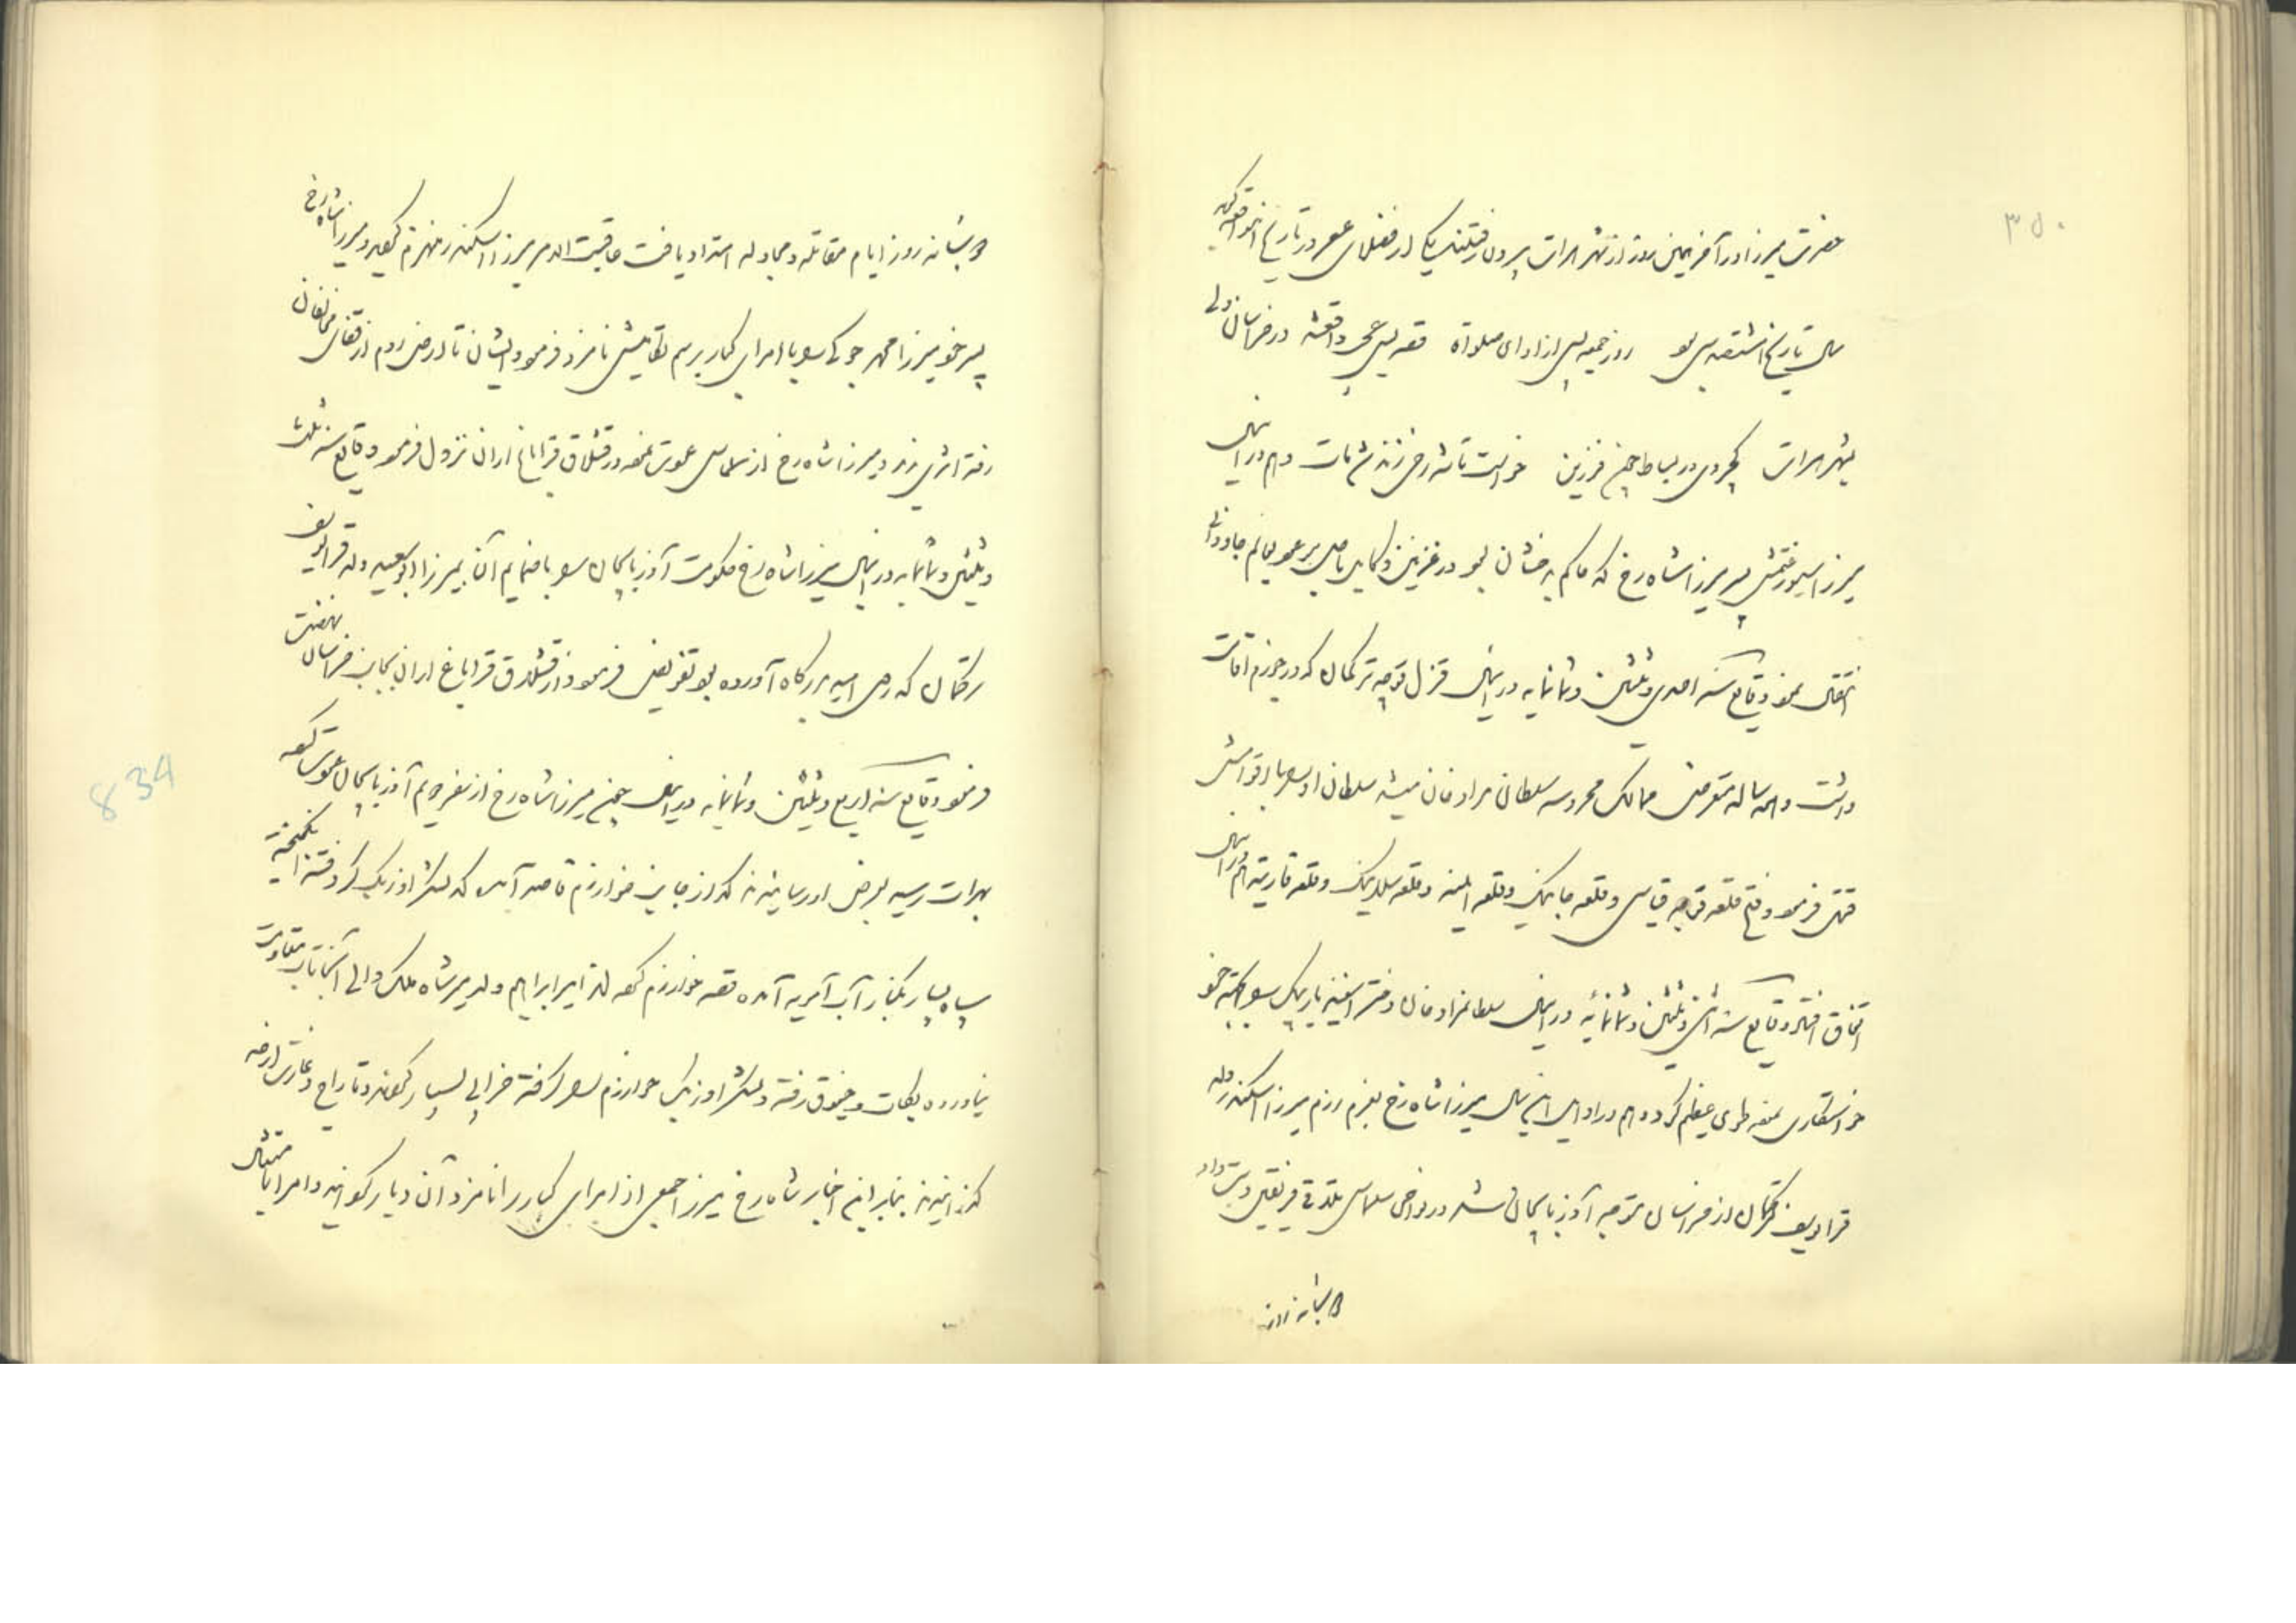 ۳۵۰
حضرت میرزا در آخر همین روز از شهر هرات بیرون رفتند یکی از فضلای عصر در تاریخ این واقعه گوید
سال تاریخ هشتصد و سی بود روز جمعه پس از ادای صلوة قصه بس عجب واقع شد در خراسان ولی
بشهر هرات کجروی در بساط چون فرزین خواست تا شه رخی زند شد مات و هم در این سال
میرزا سیورغتمش پسر میرزا شاه رخ که حاکم بدخشان بود در غزنین و کابل بعالم جاودانی
انتقال نمود وقایع سنه احدی و ثلثین و ثمانمایه در این سال قزل قوجه ترکمان که در اقامت
داشت و همه ساله متعرض ممالک محروسه سلطان مراد خان میشد سلطان او را با اقوامش
قتل فرمود و فتح قلعه قوجه قیاسی و قلعه جانیک و قلعه و قلعه و قلعه هم در این سال
اتفاق افتاد وقایع سنه اثنی و ثلثین و ثمانمائه در این سال سلطان مراد خان دختر اسفندیار بیک را بجهة خود
خواستگاری نموده طوی عظیم کرد و هم در اوایل این سال میرزا شاه رخ بعزم رزم میرزا اسکندر ولد
قرا یوسف ترکمان از خراسان متوجه آذربایجان شد در نواحی سلماس تلاقی فریقین دست داد
دو شبانه روز
دو شبانه روز ایام مقاتله و مجادله امتداد یافت عاقبت الامر میرزا اسکندر منهزم گردید و میرزا شاه رخ
پسر خود میرزا محمد جوکی را با امرای کبار برسم تکامیشی نامزد فرمود و ایشان تا ارض روم از قفای مخالفان
رفته اثری ندید و میرزا شاه رخ از سلماس عودت نموده در قشلاق قراباغ اران نزول فرمود وقایع سنه ثلث
و ثلثین و ثمانمایه در این سال میرزا شاه رخ حکومت آذربایجان را با ضمایم آن بمیرزا ابوسعید ولد قرا یوسف
ترکمان که روی امید بدرگاه آورده بود تفویض فرمود و از قشلاق قراباغ اران بجانب خراسان نهضت
فرمود وقایع سنه اربع و ثلثین و ثمانمایه در این سال چون میرزا شاه رخ از سفر دویم آذربایجان عودت کرده
بهرات رسید بعرض او رسانیدند که از جانب خوارزم قاصد آمده که لشکر اوزبک گرد فتنه انگیخته
سپاه بسیار بکنار آب آمویه آمده قصد خوارزم کرده اند امیر ابراهیم ولد میر شاه ملک والی آنجا تاب مقاومت
نیاورده بکات و خیوق رفته و لشکر اوزبک خوارزم را گرفته خرابی بسیار کرده و تاراج و غارت از حد
گذرانیدند بنابر این اخبار شاه رخ میرزا جمعی از امرای کبار را نامزد آن دیار گردانید و امرا با متثال
834